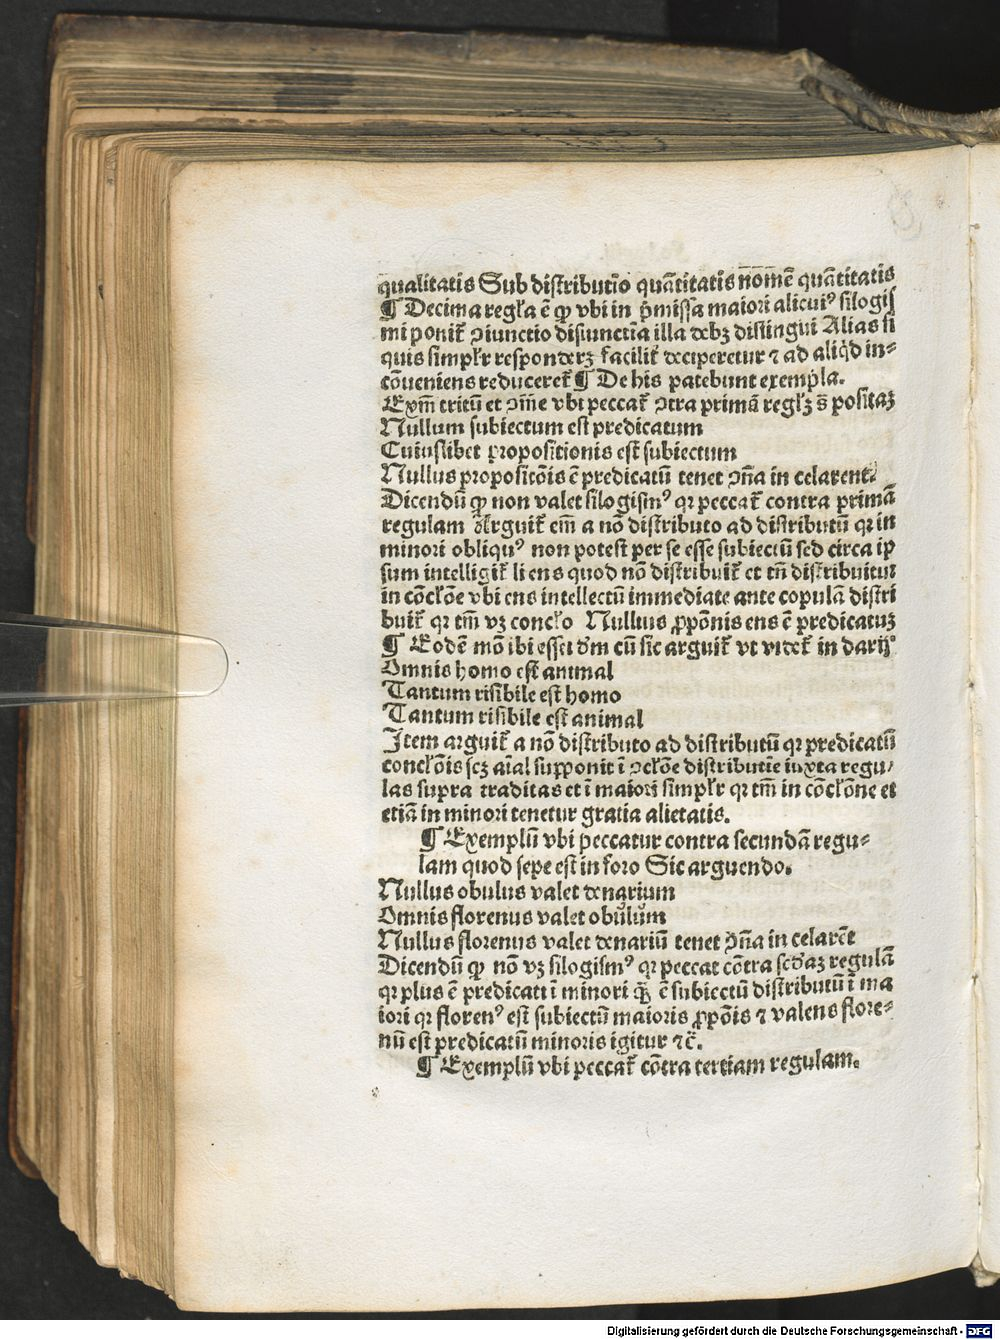 qualitatis Sub distributio̅ qua̅titatis nome̅ qua̅titatis
¶ Decima regl̕a e̅ ꝙ vbi in p̅missa maiori alicuiꝰ silogis
mi ponit᷑ ↄiunctio disiunctia̅ illa debꝫ distingui Alias si
quis simpl̕r responderꝫ facilit᷑ deciperetur ⁊ ad aliq̕d in⸗
co̅ueniens reduceret᷑ ¶ De his patebunt exempla.
Exm̅ tritu̅ et ↄm̅e vbi peccat᷑ ↄtra prima̅ regl̕ꝫ s̅ positaꝫ
Nullum subiectum est predicatum
Cuiuslibet propositionis est subiectum
Nullus propositio̅is e̅ predicatu̅ tenet ↄn̅a in celarent.
Dicendu̅ ꝙ non valet silogismꝰ qꝛ peccat᷑ contra prima̅
regulam Arguit᷑ em̅ a no̅ distributo ad distributu̅ qꝛ in
minori obliquꝰ non potest per se esse subiectu̅ sed circa ip
sum intelligit᷑ li ens quod no̅ distribuit᷑ et tn̅ distribuitur
in co̅cl̕o̅e vbi ens intellectu̅ immediate ante copula̅ distri
buit᷑ qꝛ tm̅ vꝫ concl̕o Nullius ꝓpo̅nis ens e̅ predicatuꝫ
¶ Eode̅ mo̅ ibi esset dm̅ cu̅ sic arguit᷑ vt videt᷑ in darijꝰ
Omnis homo est animal
Tantum risibile est homo
Tantum risibile est animal
Item arguit᷑ a no̅ distributo ad distributu̅ qꝛ predicatu̅
concl̕o̅is scꝫ ai̅al supponit i̅ ↄcl̕o̅e distributiue iuxta regu⸗
las supra traditas et i̅ maiori simpl̕r qꝛ tm̅ in co̅cl̕o̅ne et
etia̅ in minori tenetur gratia alietatis.
¶ Exemplu̅ vbi peccatur contra secunda̅ regu⸗
lam quod sepe est in foro Sic arguendo.
Nullus obulus valet denarium
Omnis florenus valet obulum
Nullus florenus valet denariu̅ tenet ↄn̅a in celare̅t
Dicendu̅ ꝙ no̅ vꝫ silogismꝰ qꝛ peccat co̅tra scd̕aꝫ regula̅
qꝛ plus e̅ predicati i̅ minori ꝙ̅ e̅ subiectu̅ distributu̅ i̅ ma
iori qꝛ florenꝰ est subiectu̅ maioris ꝓpo̅is ⁊ valens flore⸗
nu̅ est predicatu̅ minoris igitur ⁊c̅.
¶ Exemplu̅ vbi peccat᷑ co̅tra tertiam regulam.
Digitalisierung gefördert durch die Deutsche Forschungsgemeinschaft - DFG